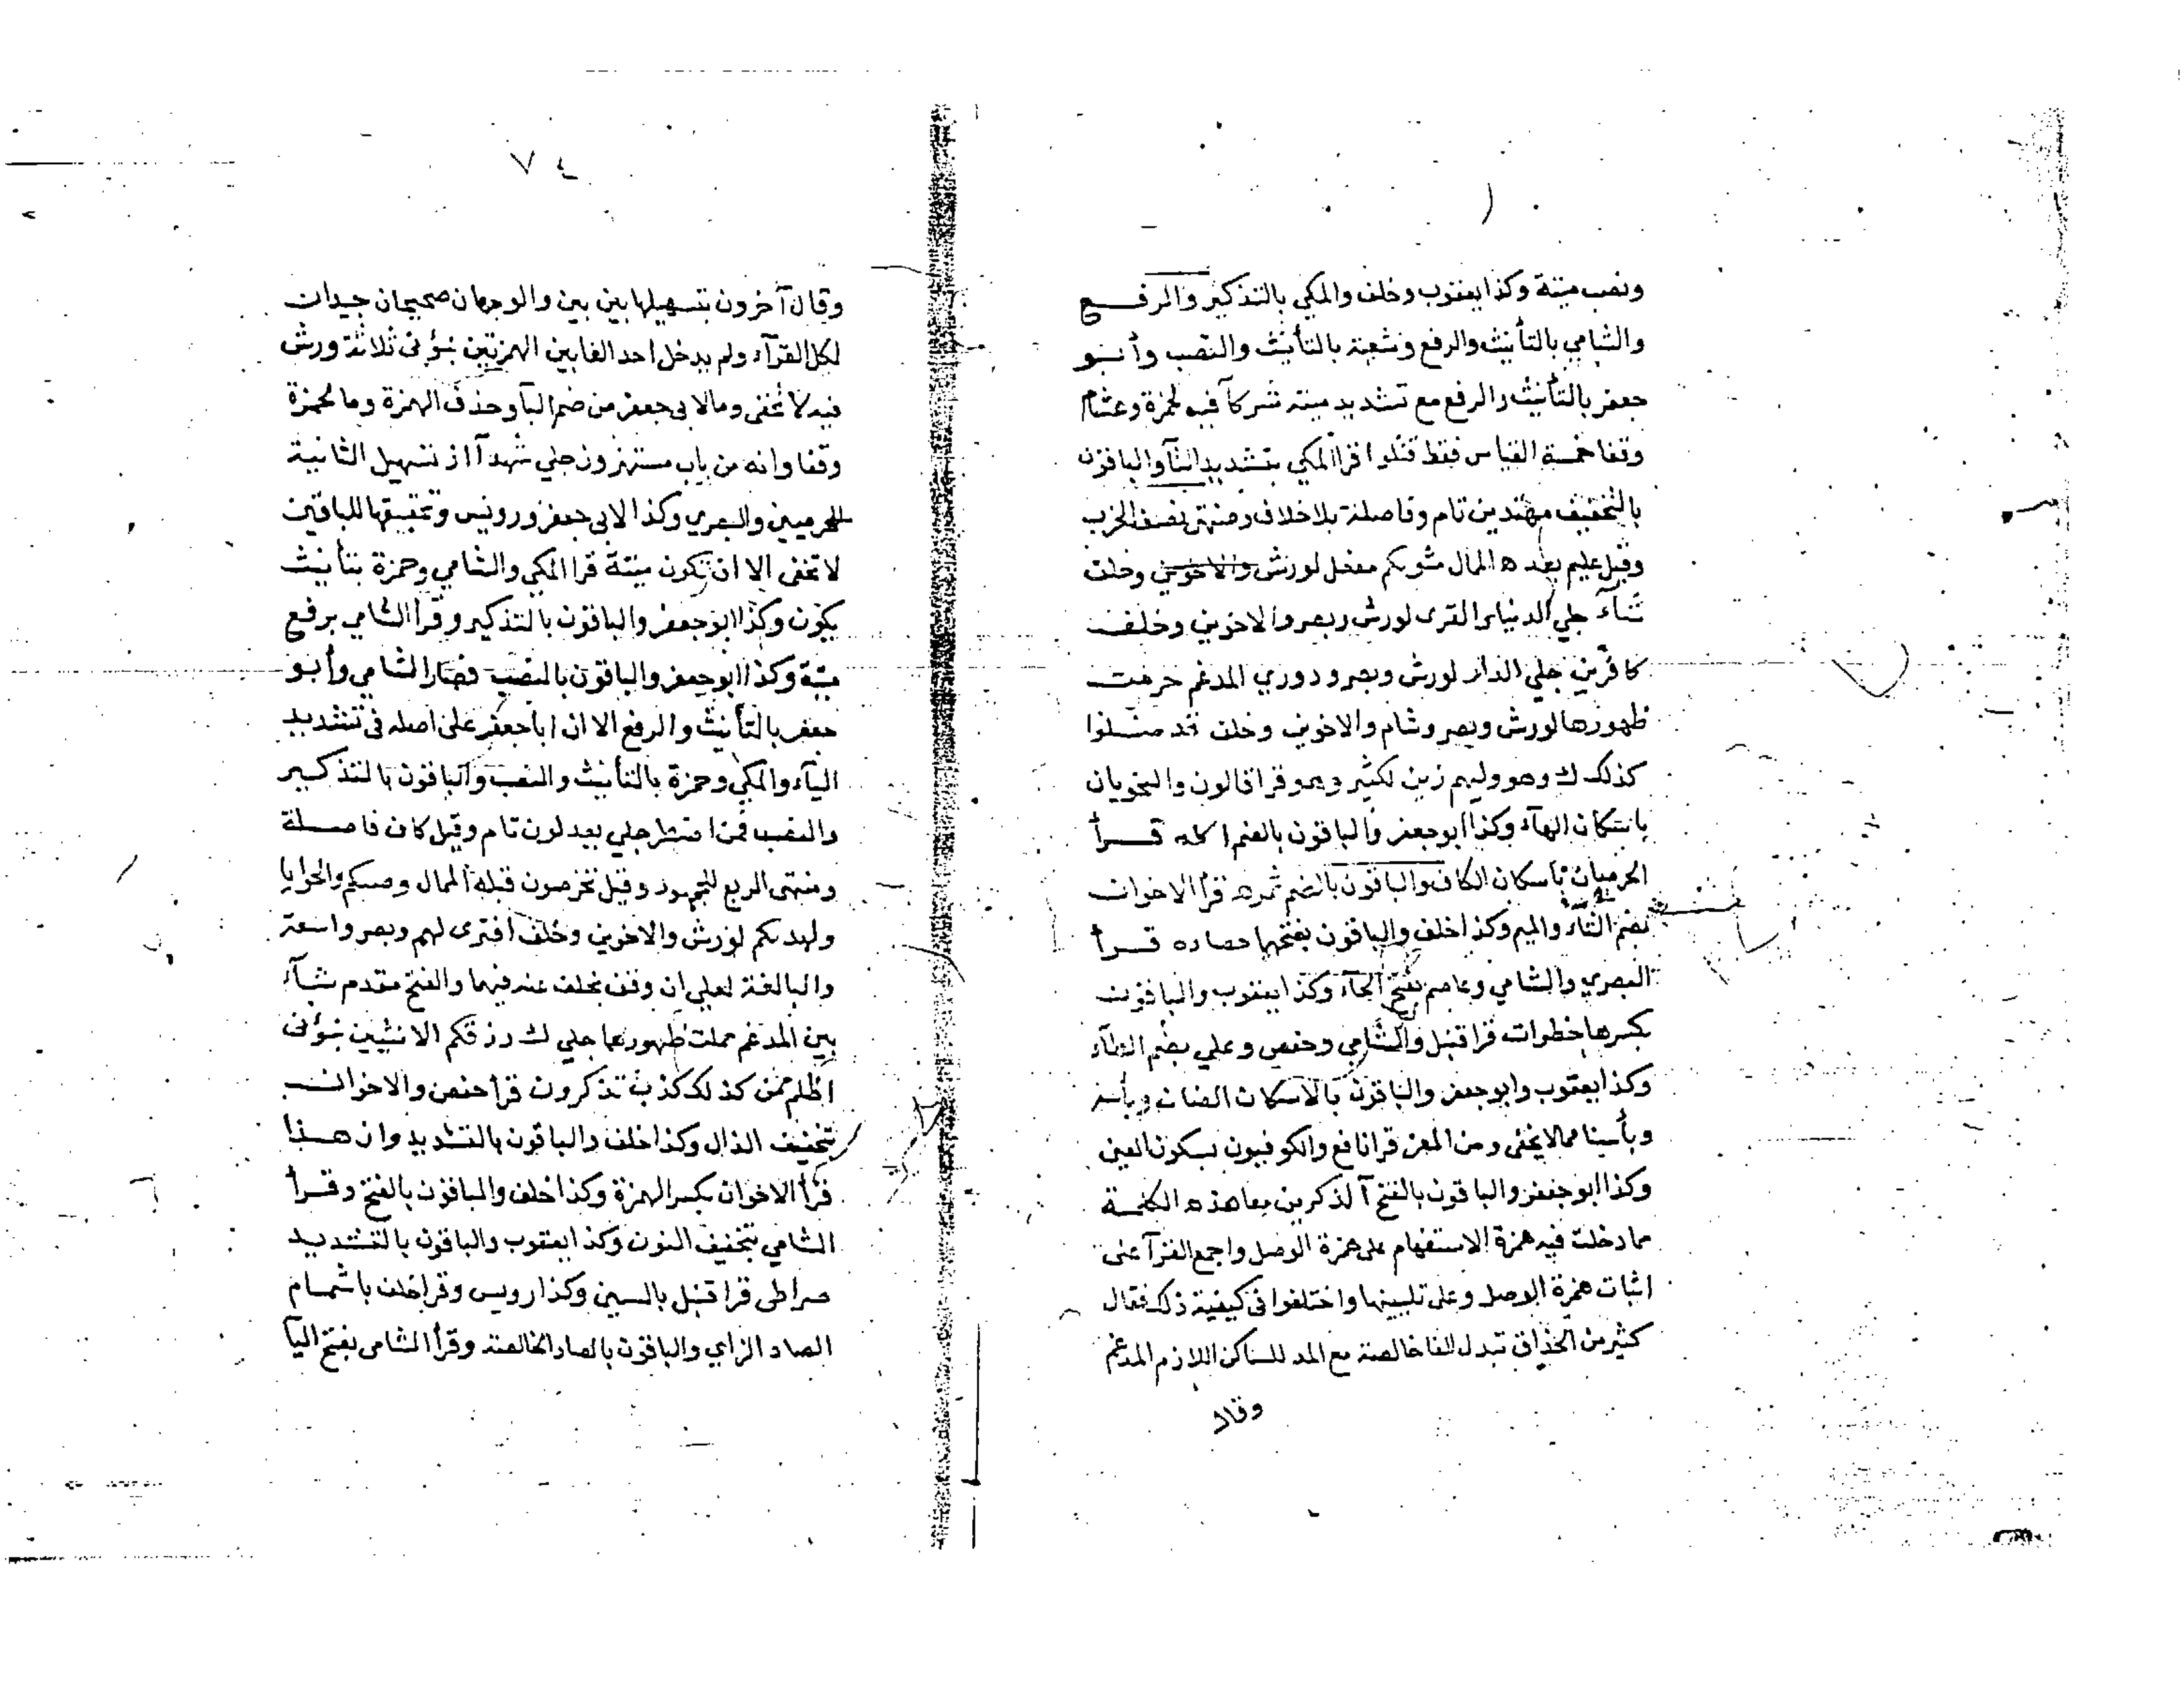 ونصب ميتة وكذا يعقوب وخلف والمكي بالتذكير والرفــع
والشامي بالتأنيث والرفع وشعبة بالتأنيث والنصب وأبــو
جعفر بالتأنيث والرفع مع تشديد ميتة شركآ فيه لحمزة وهشام
وقفا خمسة القياس فقط قتلوا قرأ المكي بتشديد التآ والباقون
بالتخفيف مهتدين تام وفاصلة بلا خلاف ومنتهى نصف الحزب
وقيل عليم بعده الممال مثويكم معغل لورش والاخوين وخلف
شآء جلي الدنيا والقرى لورش وبصر والاخوين وخلف
كافرين جلي الدار لورش وبصر ودوري المدغم حرمت
ظهورها لورش وبصر وشام والاخوين وخلف قد ضــلوا
كذلك ك وهو وليهم زين لكثير وهو قرا قالون والنحويان
باسكان الهآء وكذا ابو جعفر والباقون بالضم اكله قــرأ
الحرميان باسكان الكاف والباقون بالضم ثمره قرأ الاخوان
بضم الثآء والميم وكذا خلف والباقون بفتحها حصاده قــرأ
البصري والشامي وعاصم بفتح الحآء وكذا يعقوب والباقون
بكسرها خطوات قرا قنبل والشامي وحفص وعلي بضم الطآء
وكذا يعقوب وابو جعفر والباقون بالاسكان الضان وبأسه
وبأسنا مما لا يخفى ومن المعز قرا نافع والكوفيون بسكون العين
وكذا ابو جعفر والباقون بالفتح آلذكرين معا هذه الكلمــة
مما دخلت فيه همزة الاستفهام على همزة الوصل واجمع القرآ على
اثبات همزة الوصل وعلى تليينها واختلفوا في كيفية ذلك فقال
كثير من الحذاق تبدل الفا خالصة مع المد للساكن اللازم المدغم
وقال
٧٤
وقال آخرون بتسهيلها بين بين والوجهان صحيحان جيدان
لكل القرآء ولم يدخل احد الفا بين الهمزتين نبؤني ثلاثة ورش
فيه لا تخفى وما لابي جعفر من ضم البآ وحذف الهمزة وما لحمزة
وقفا وانه من باب مستهزون جلي شهدآ اذ تسهيل الثانية
للحرميين والبصري وكذا لابي جعفر ورويس وتحقيقها للباقين
لا تخفى الا ان تكون ميتة قرا المكي والشامي وحمزة بتأنيث
يكون وكذا ابو جعفر والباقون بالتذكير وقرأ الشامي برفع
ميتة وكذا ابو جعفر والباقون بالنصب فصار الشامي وأبو
جعفر بالتأنيث والرفع الا ان ابا جعفر على اصله في تشديد
اليآء والمكي وحمزة بالتأنيث والنصب والباقون بالتذكــير
والنصب فمن اضطر جلي بعد لون تام وقيل كاف فاصــلة
ومنتهى الربع للجمهور وقيل تخرصون قبله الممال وصيكم والحوايا
ولهديكم لورش والاخوين وخلف افترى لهم وبصر واسعة
والبالغة لعلي ان وقف بخلف عنه فيهما والفتح مقدم شآء
بين المدغم حملت ظهورهما جلي ك رزقكم الانثيين نبؤني
اظلم ممن كذلك كذب تذكرون قرا حفص والاخوان
بتخفيف الذال وكذا خلف والباقون بالتشديد وان هــذا
قرأ الاخوان بكسر الهمزة وكذا خلف والباقون بالفتح وقــرأ
الشامي بتخفيف النون وكذا يعقوب والباقون بالتشديد
صراطي قرا قنبل بالسين وكذا رويس وقرا خلف باشمــام
الصاد الزاي والباقون بالصاد الخالصة وقرأ الشامي بفتح اليآ